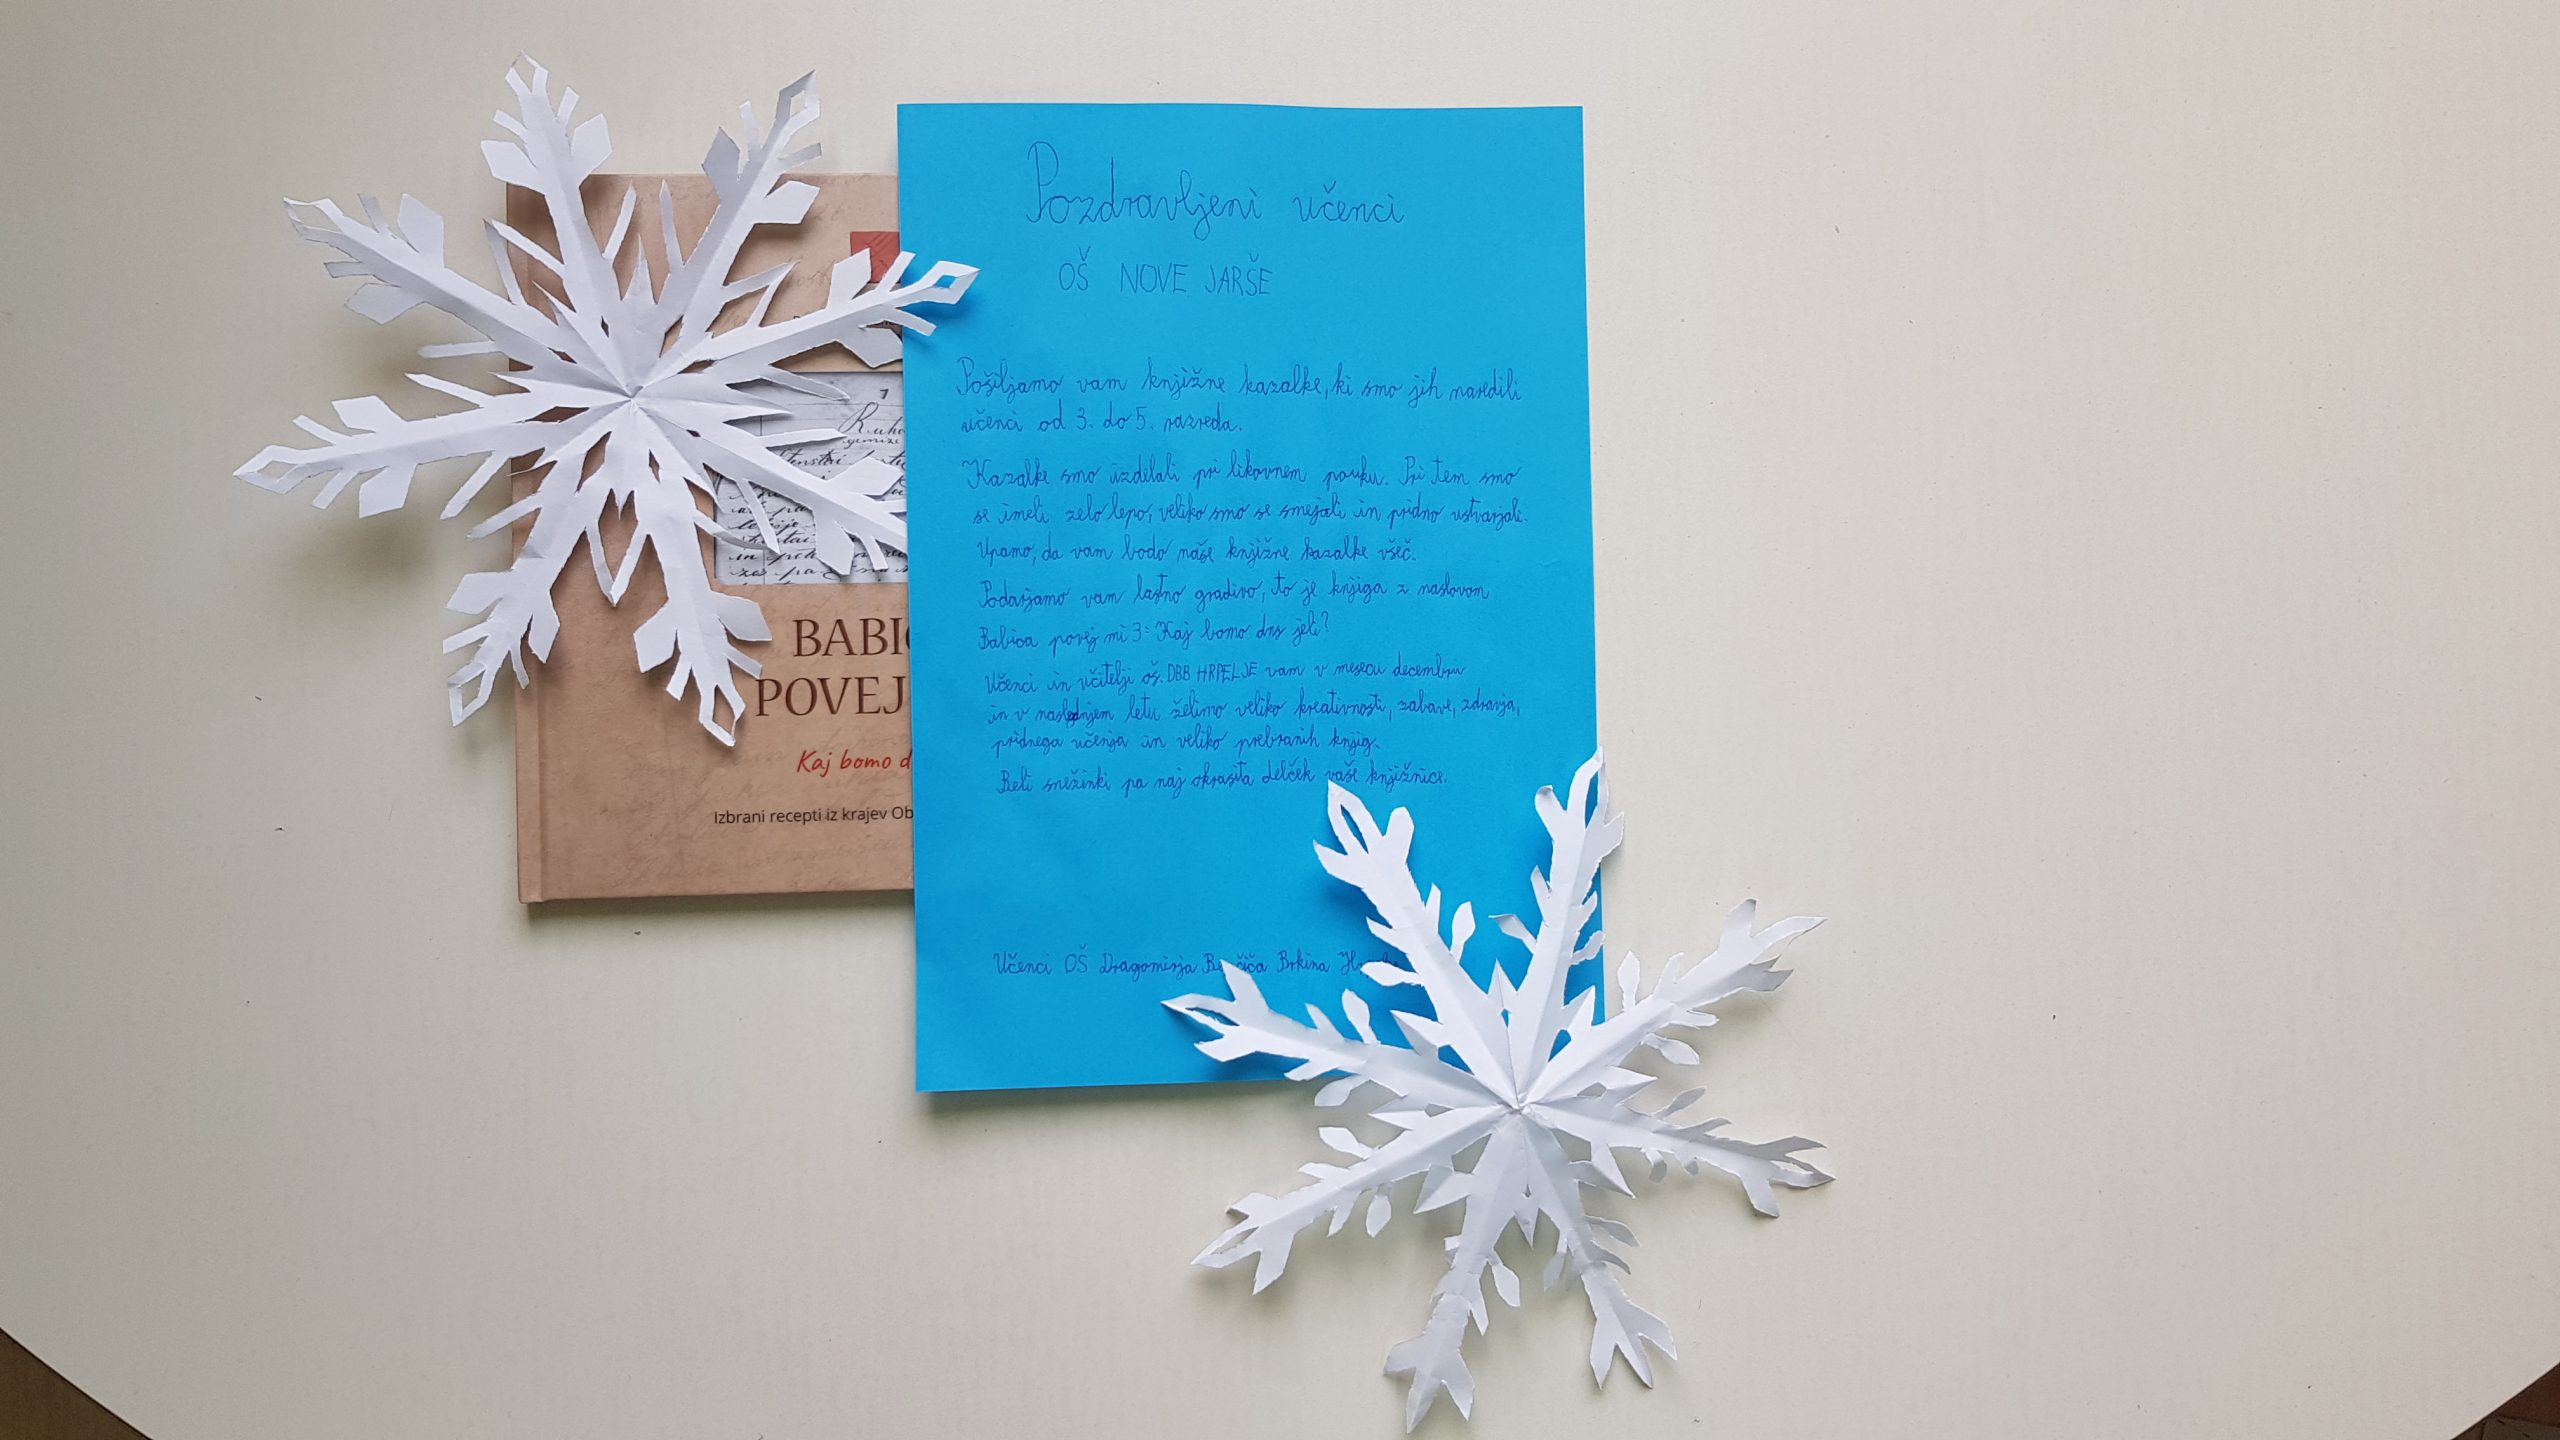 Pozdravljeni učenci
OŠ NOVE JARŠE
Pošiljamo vam knjižne kazalke, ki smo jih naredili
učenci od 3. do 5. razreda.
Kazalke smo izdelali pri likovnem pouku. Pri tem smo
se imeli zelo lepo, veliko smo se smejali in pridno ustvarjali.
Upamo, da vam bodo naše knjižne kazalke všeč.
Podarjamo vam lastno gradivo, to je knjiga z naslovom
Babica povej mi 3: Kaj bomo dns jeli?
Učenci in učitelji oš. DBB HRPELJE vam v mesecu decembru
in v naslednjem letu želimo veliko kreativnosti, zabave, zdravja,
pridnega učenja in veliko prebranih knjig.
Beli snežinki pa naj okrasita delček vaše knjižnice.
Učenci OŠ Dragomirja Brkina
BABIC
POVEJ
Kaj bomo d
Izbrani recepti iz krajev Ob